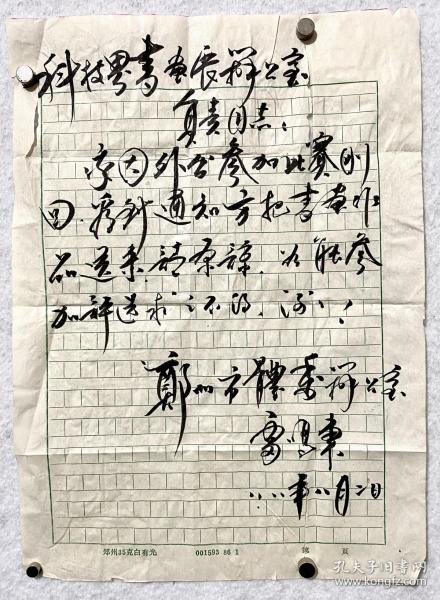 科技界书画展办公室
负责同志：
序因外出参加比赛刚
回，接到通知方把书画作
品送来，请原谅，如能参
加评选求之不得，谢谢！
郑州市体委办公室
雷鸣东
八八年八月二日
郑州35克白有光 001593 86 1 第 页
孔夫子旧书网
www.kongfz.com